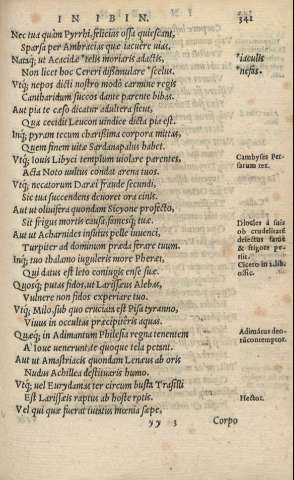 IN IBIN. 341
Nec tua quàm Pyrrhi, felicius ossa quiescant,
Sparsa per Ambracias quæ iacuêre uias.
Natáq; ut Aeacidæ *telis moriaris adactis, *iaculis
Non licet hoc Cereri dissimulare *scelus. *nefas.
Vtq; nepos dicti nostro modò carmine regis
Cantharidum succos dante parente bibas.
Aut pia te cæso dicatur adultera sicut,
Qua cecidit Leucon uindice dicta pia est.
Inq; pyram tecum charissima corpora mittas,
Quem finem uitæ Sardanapalus habet.
Vtq; Iouis Libyci templum uiolare parentes, Cambyses Per-
Acta Noto uultus condat arena tuos. sarum rex.
Vtq; necatorum Darei fraude secundi,
Sic tua succendens deuoret ora cinis.
Aut ut oliuifera quondam Sicyone profecto, Diocles à suis
Sit frigus mortis causa, famesq; tuæ. ob crudelitatē
Aut ut Acharnides insutus pelle iuuenci, detectus fame
Turpiter ad dominum præda ferare tuum. & frigore pe-
Inq; tuo thalamo iuguleris more Pheræi, riit.
Qui datus est leto coniugis ense suæ. Cicero in 2. lib.
Quosq; putas fidos, ut Larissæus Aleuas, offic.
Vulnere non fidos experiare tuo.
Vtq; Milo, sub quo cruciata est Pisa tyranno,
Viuus in occultas præcipiteris aquas.
Quæq; in Adimantum Philesia regna tenentem Adimātus deo-
A' Ioue uenerunt, te quoque tela petant. rū contemptor.
Aut ut Amastriacis quondam Lenæus ab oris
Nudus Achillea destituaris humo.
Vtq; uel Eurydamas ter circum busta Trasilli
Est Larissæis raptus ab hoste rotis. Hector.
Vel qui quæ fuerat tutatus mœnia sæpe,
yy 3 Corpo